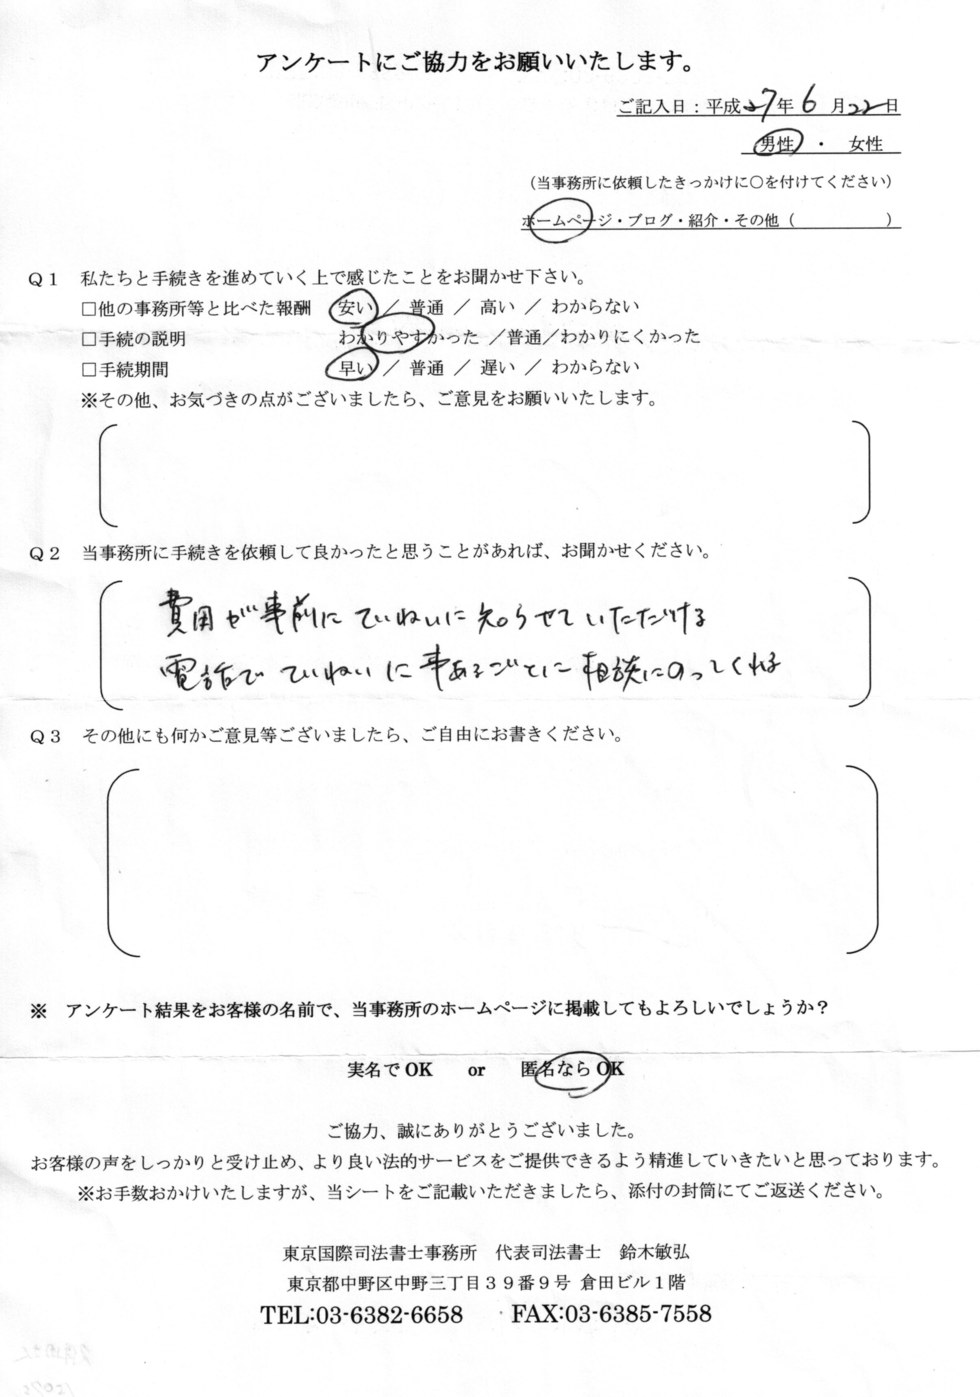 アンケートにご協力をお願いいたします。
ご記入日：平成27年6月22日
男性・女性
（当事務所に依頼したきっかけに○を付けてください）
ホームページ・ブログ・紹介・その他（　　　　　）
Ｑ１　私たちと手続きを進めていく上で感じたことをお聞かせ下さい。
□他の事務所等と比べた報酬　安い ／ 普通 ／ 高い ／ わからない
□手続の説明　わかりやすかった ／普通／わかりにくかった
□手続期間　早い ／ 普通 ／ 遅い ／ わからない
※その他、お気づきの点がございましたら、ご意見をお願いいたします。
Ｑ２　当事務所に手続きを依頼して良かったと思うことがあれば、お聞かせください。
費用が事前にていねいに知らせていただける
電話でていねいに事あるごとに相談にのってくれる
Ｑ３　その他にも何かご意見等ございましたら、ご自由にお書きください。
※　アンケート結果をお客様の名前で、当事務所のホームページに掲載してもよろしいでしょうか？
実名でOK　or　匿名ならOK
ご協力、誠にありがとうございました。
お客様の声をしっかりと受け止め、より良い法的サービスをご提供できるよう精進していきたいと思っております。
※お手数おかけいたしますが、当シートをご記載いただきましたら、添付の封筒にてご返送ください。
東京国際司法書士事務所　代表司法書士　鈴木敏弘
東京都中野区中野三丁目３９番９号 倉田ビル１階
TEL:03-6382-6658　FAX:03-6385-7558